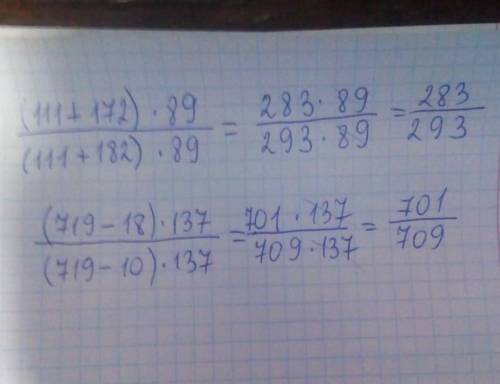 (111+172)·89 / (111+182)·89 = 283·89 / 293·89 = 283 / 293
(719-18)·137 / (719-10)·137 = 701·137 / 709·137 = 701 / 709